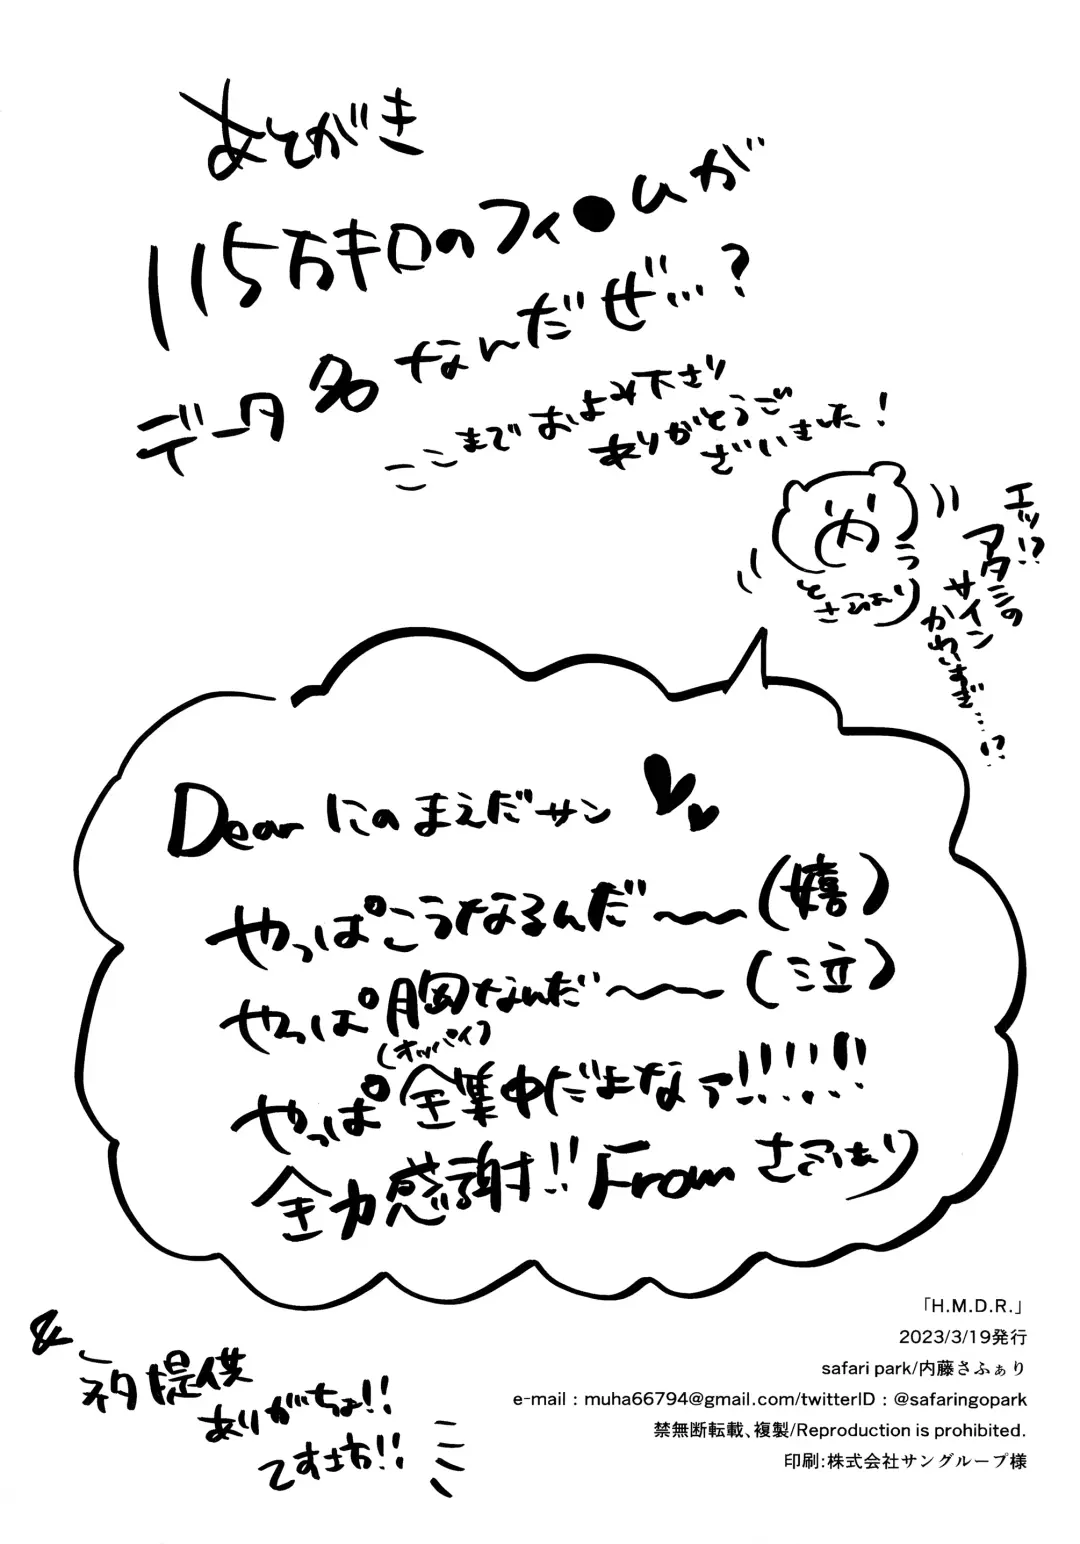 あとがき
115万キロのフィ●ムが
データ名なんだぜ…?
ここまでおよみ下さり
ありがとうご
ざいました!
ないとう
さふぁり
エッ!?
アタシの
サイン
かわいすぎ…!?
Dear にのまえださん
やっぱこうなるんだ〜〜(嬉)
やっぱ胸なんだ〜〜(泣)
(オッパイ)
やっぱ全集中だよなァ!!!!!
全力感謝!! From さふぁり
&
ネタ提供
ありがちょ!!
てすさ方!!
「H.M.D.R.」
2023/3/19発行
safari park/内藤さふぁり
e-mail : muha66794@gmail.com/twitterID : @safaringopark
禁無断転載、複製/Reproduction is prohibited.
印刷:株式会社サングループ様